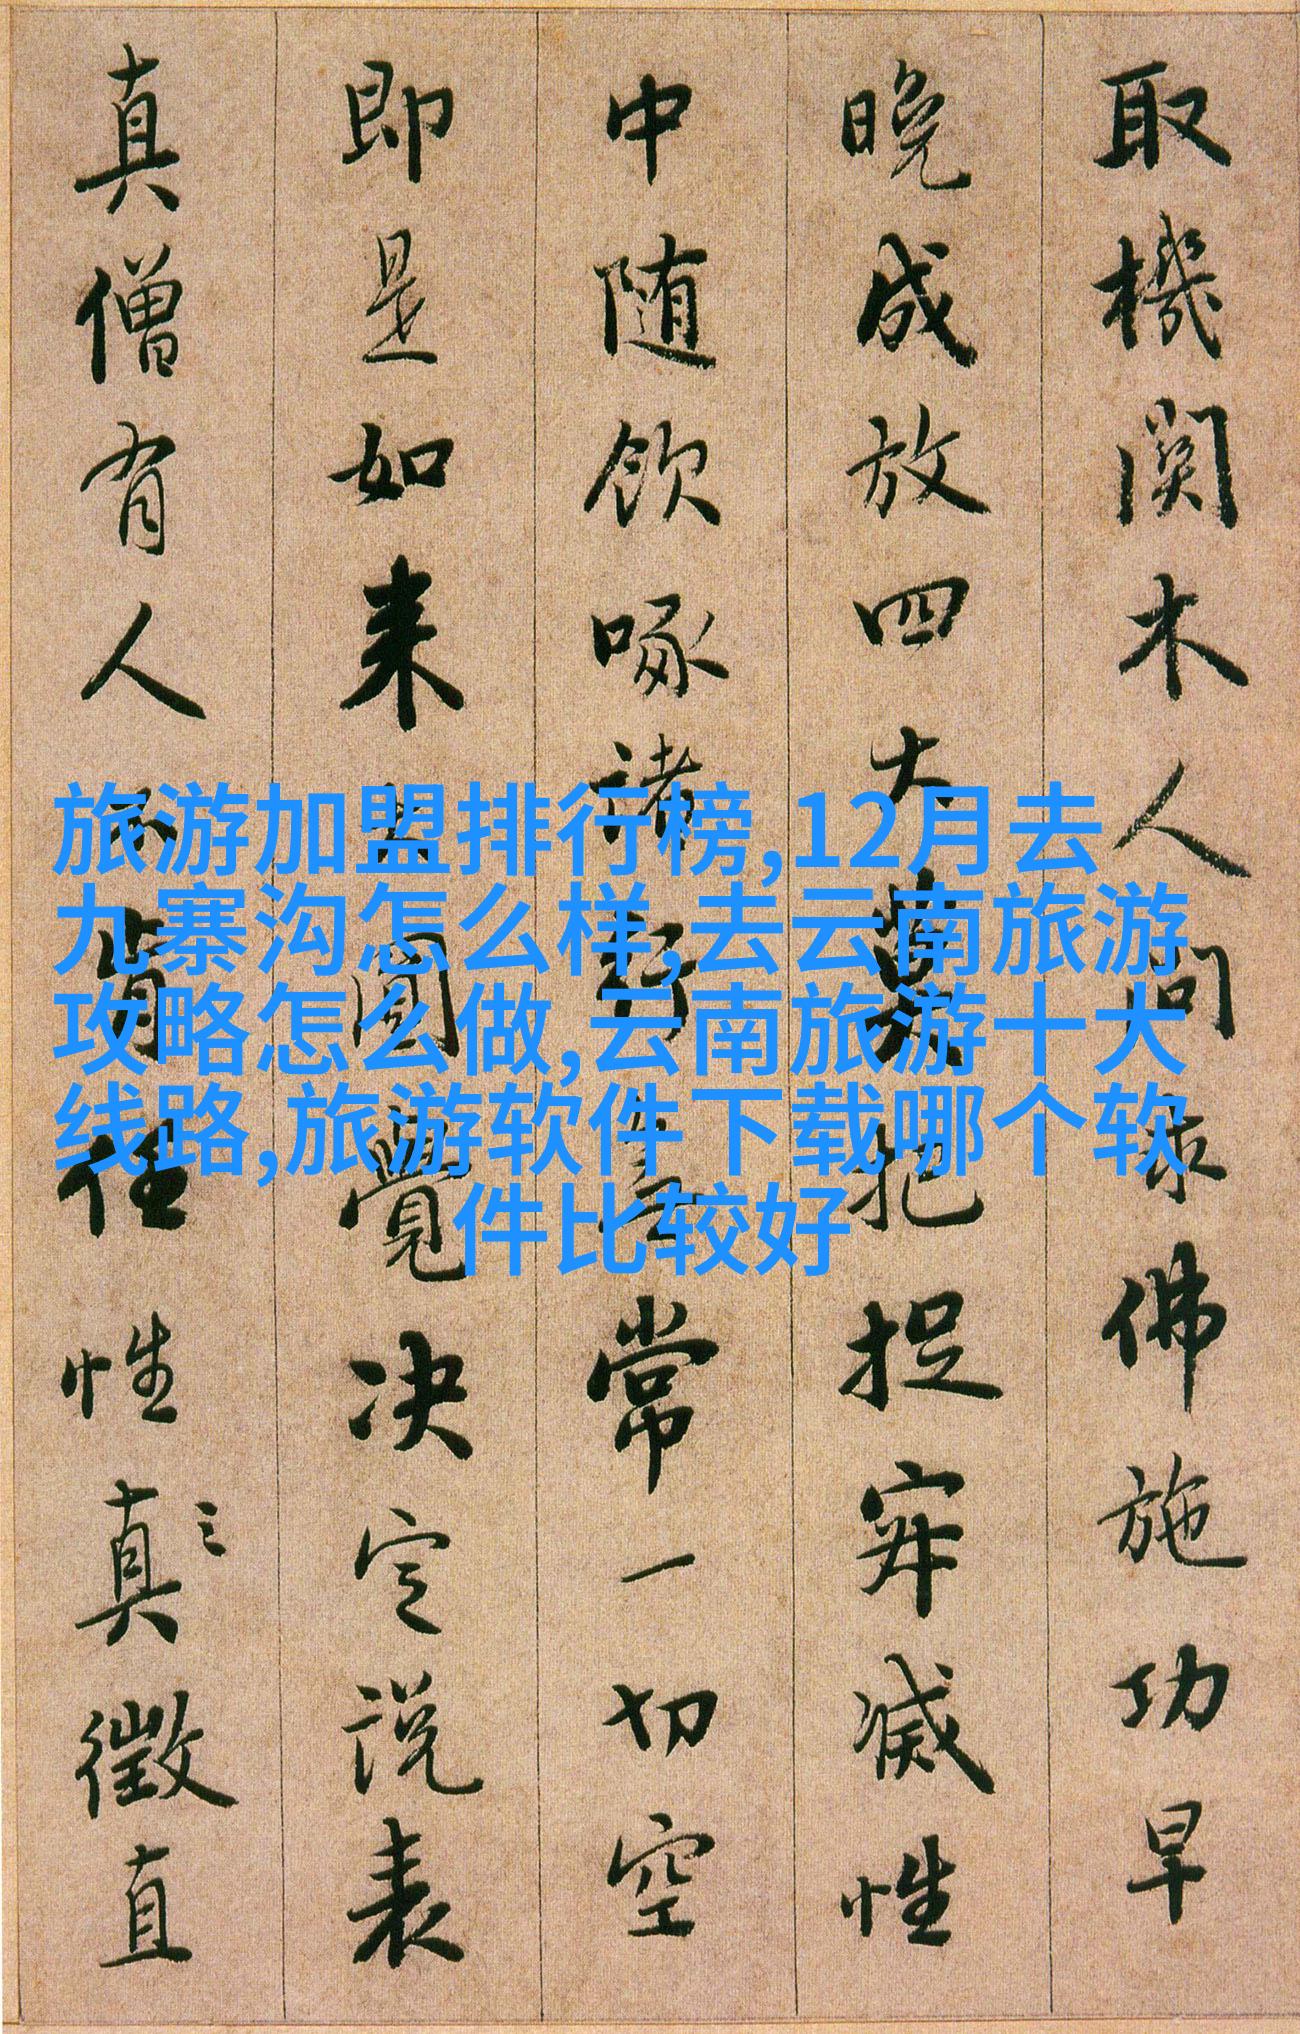 取機關木人問求佛施功早
晚成放四大莫把捉寂滅性
中随飲啄諸行無常一切空
即是如来大圓覺决定說表
真僧有人不肯任性真徵直
旅游加盟排行榜,12月去
九寨沟怎么样,去云南旅游
攻略怎么做,云南旅游十大
线路,旅游软件下载哪个软
件比较好